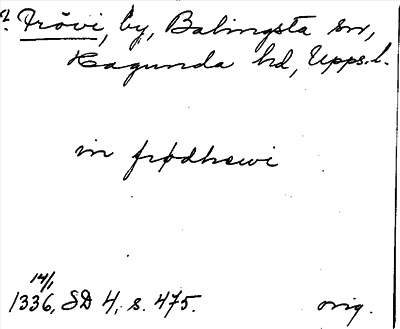 ? Frövi, by, Balingsta sn,
Hagunda hd, Upps. l.
in frødhæwi
14/1
1336, SD 4, s. 475.
orig.